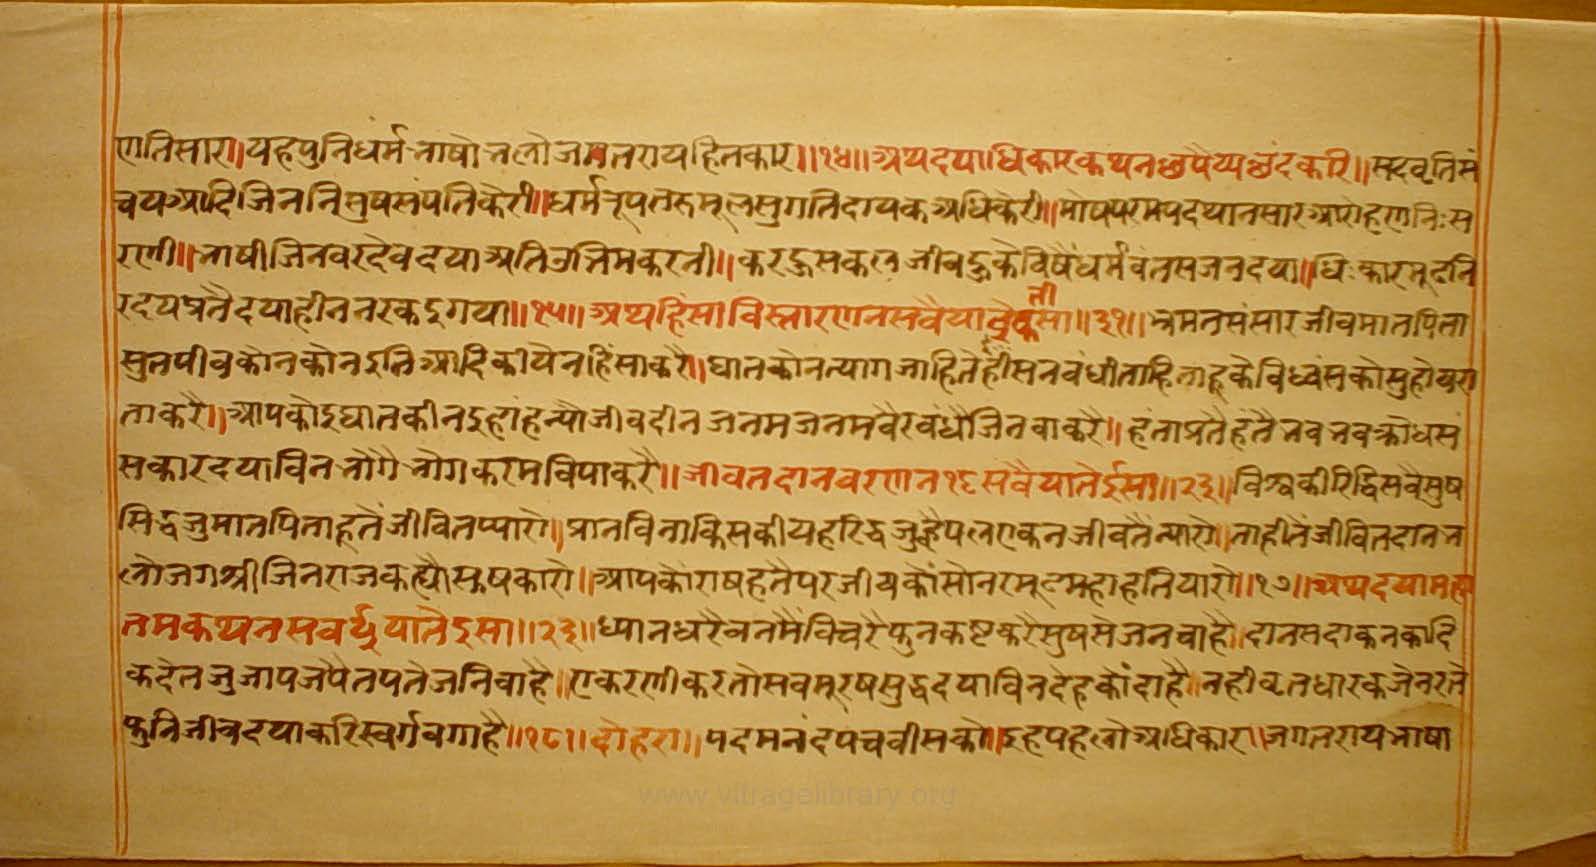 णतिसारा॥यहपुनिधर्मभाषोभलोजगतरायहितकार॥१४॥अथदयाधिकारकथनछप्पैय्यछंदकरि॥सदवृतिसं
चयआदिजिननिसुषसंपतिकेरी॥धर्मनूपतरुमूलसुगतिदायकअधिकेरी॥मोषपरमपदथानसारआरोहणनिःस
रणी॥भाषीजिनवरदेवदयाअतिउत्तिमकरनी॥करहुसकलजीवहुकेविषैंधर्मवंतसजनदया॥धिःकारमूढनि
रदयप्रतैदयाहीननरकहुगया॥१५॥अथहिंसाविस्तारणनसवैयातेईसा॥३१॥भ्रमतसंसारजीवमातपिता
सुतपीवकोनकोनइतिआदिकीयेनहिंसाकरै॥घातकोनत्यागजाहितेहैसनबंधीताहिताहूकेविध्वंसकोसुहोयरा
ताकरै॥आपकोऽघातकीनइहांहन्यौजीवदीनजनमजनमवैरवंधैजिनवाकरै॥हंताप्रतैहंतैभवभवक्रोधसं
सकारदयाविनभोगैभोगकरमविपाकरै॥जीवतदानवरणन१६सवैयातेईसा॥२३॥विश्वकीरिद्धिसवैसुष
सिद्धजुमातपिताहूतेंजीवितप्पारो॥प्रानविनाकिसकीयहरिद्धजुह्वैपलएकनजीवतैन्यारो॥ताहीतैंजीवितदानभ
लोजगश्रीजिनराजकह्यौसुषकारो॥आपकोंराषहतैपरजीवकोंसोनरमूढमहाहतियारो॥१७॥अथदयामहा
तमकथनसवईयातेइसा॥२३॥ध्यानधरैवनमैंविचरैफुनकष्टकरैसुषसेजनचाहै॥दानसदाकनकादि
कदेतजुजापजपैतपतेजनिवाहै॥एकरणीकरतोसवमूरषसुद्धदयाविनदेहकोंदाहै॥नहीवृतधारकजेनरते
फुनिजीवदयाकरिस्वर्गवगाहै॥१८॥दोहरा॥पदमनंदपचवीसको॥इहपहलोअधिकार॥जगतरायभाषा
www.vitragelibrary.org